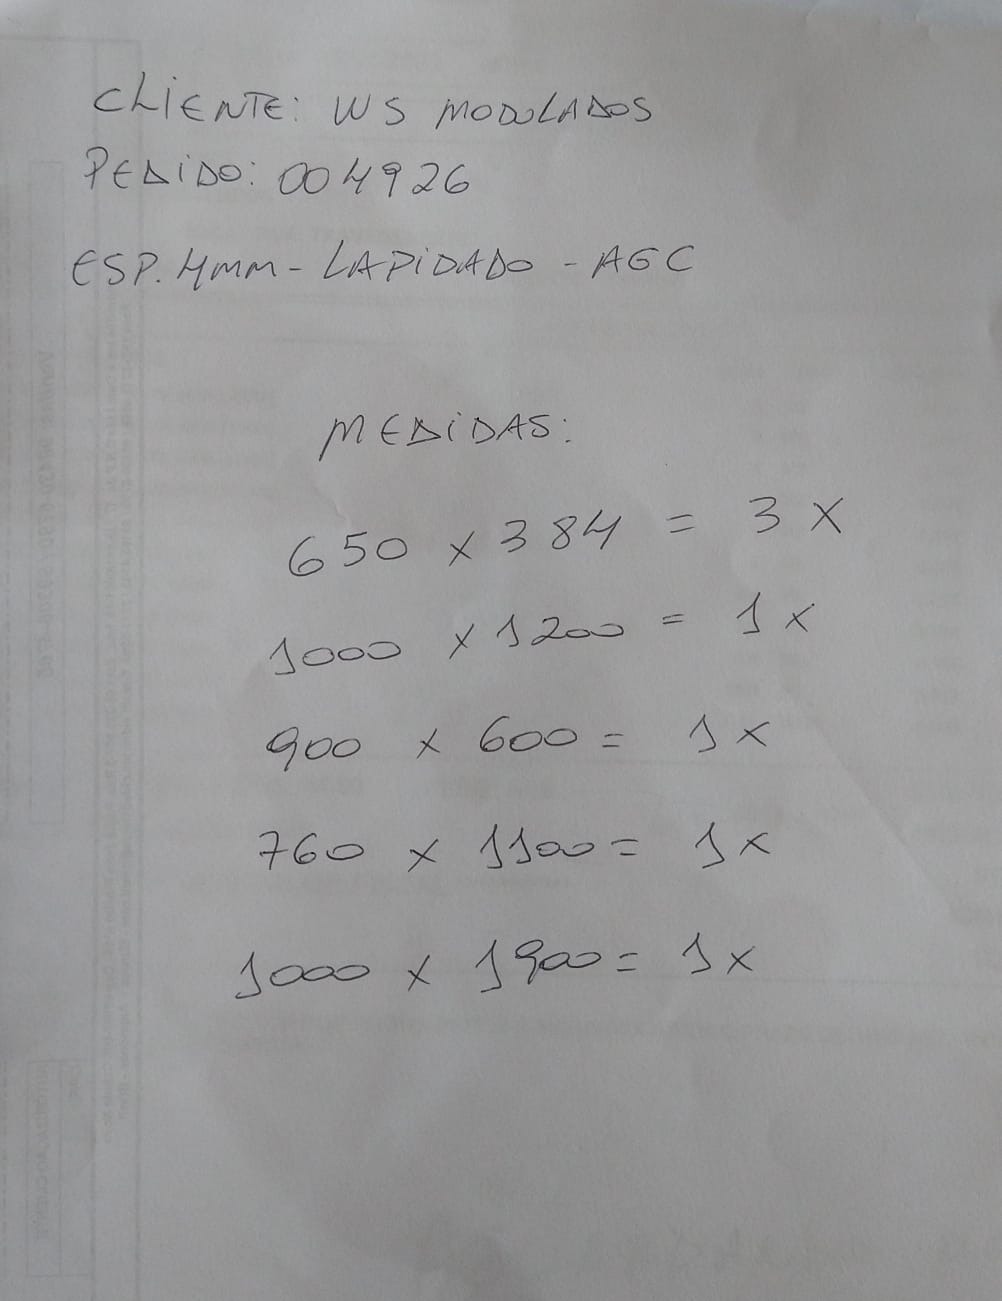 CLIENTE: WS MODULADOS
PEDIDO: 004926
ESP. 4mm - LAPIDADO - AGC
MEDIDAS:
650 x 384 = 3 X
1000 x 1200 = 1 x
900 x 600 = 1 x
760 x 1100 = 1 x
1000 x 1900 = 1 x